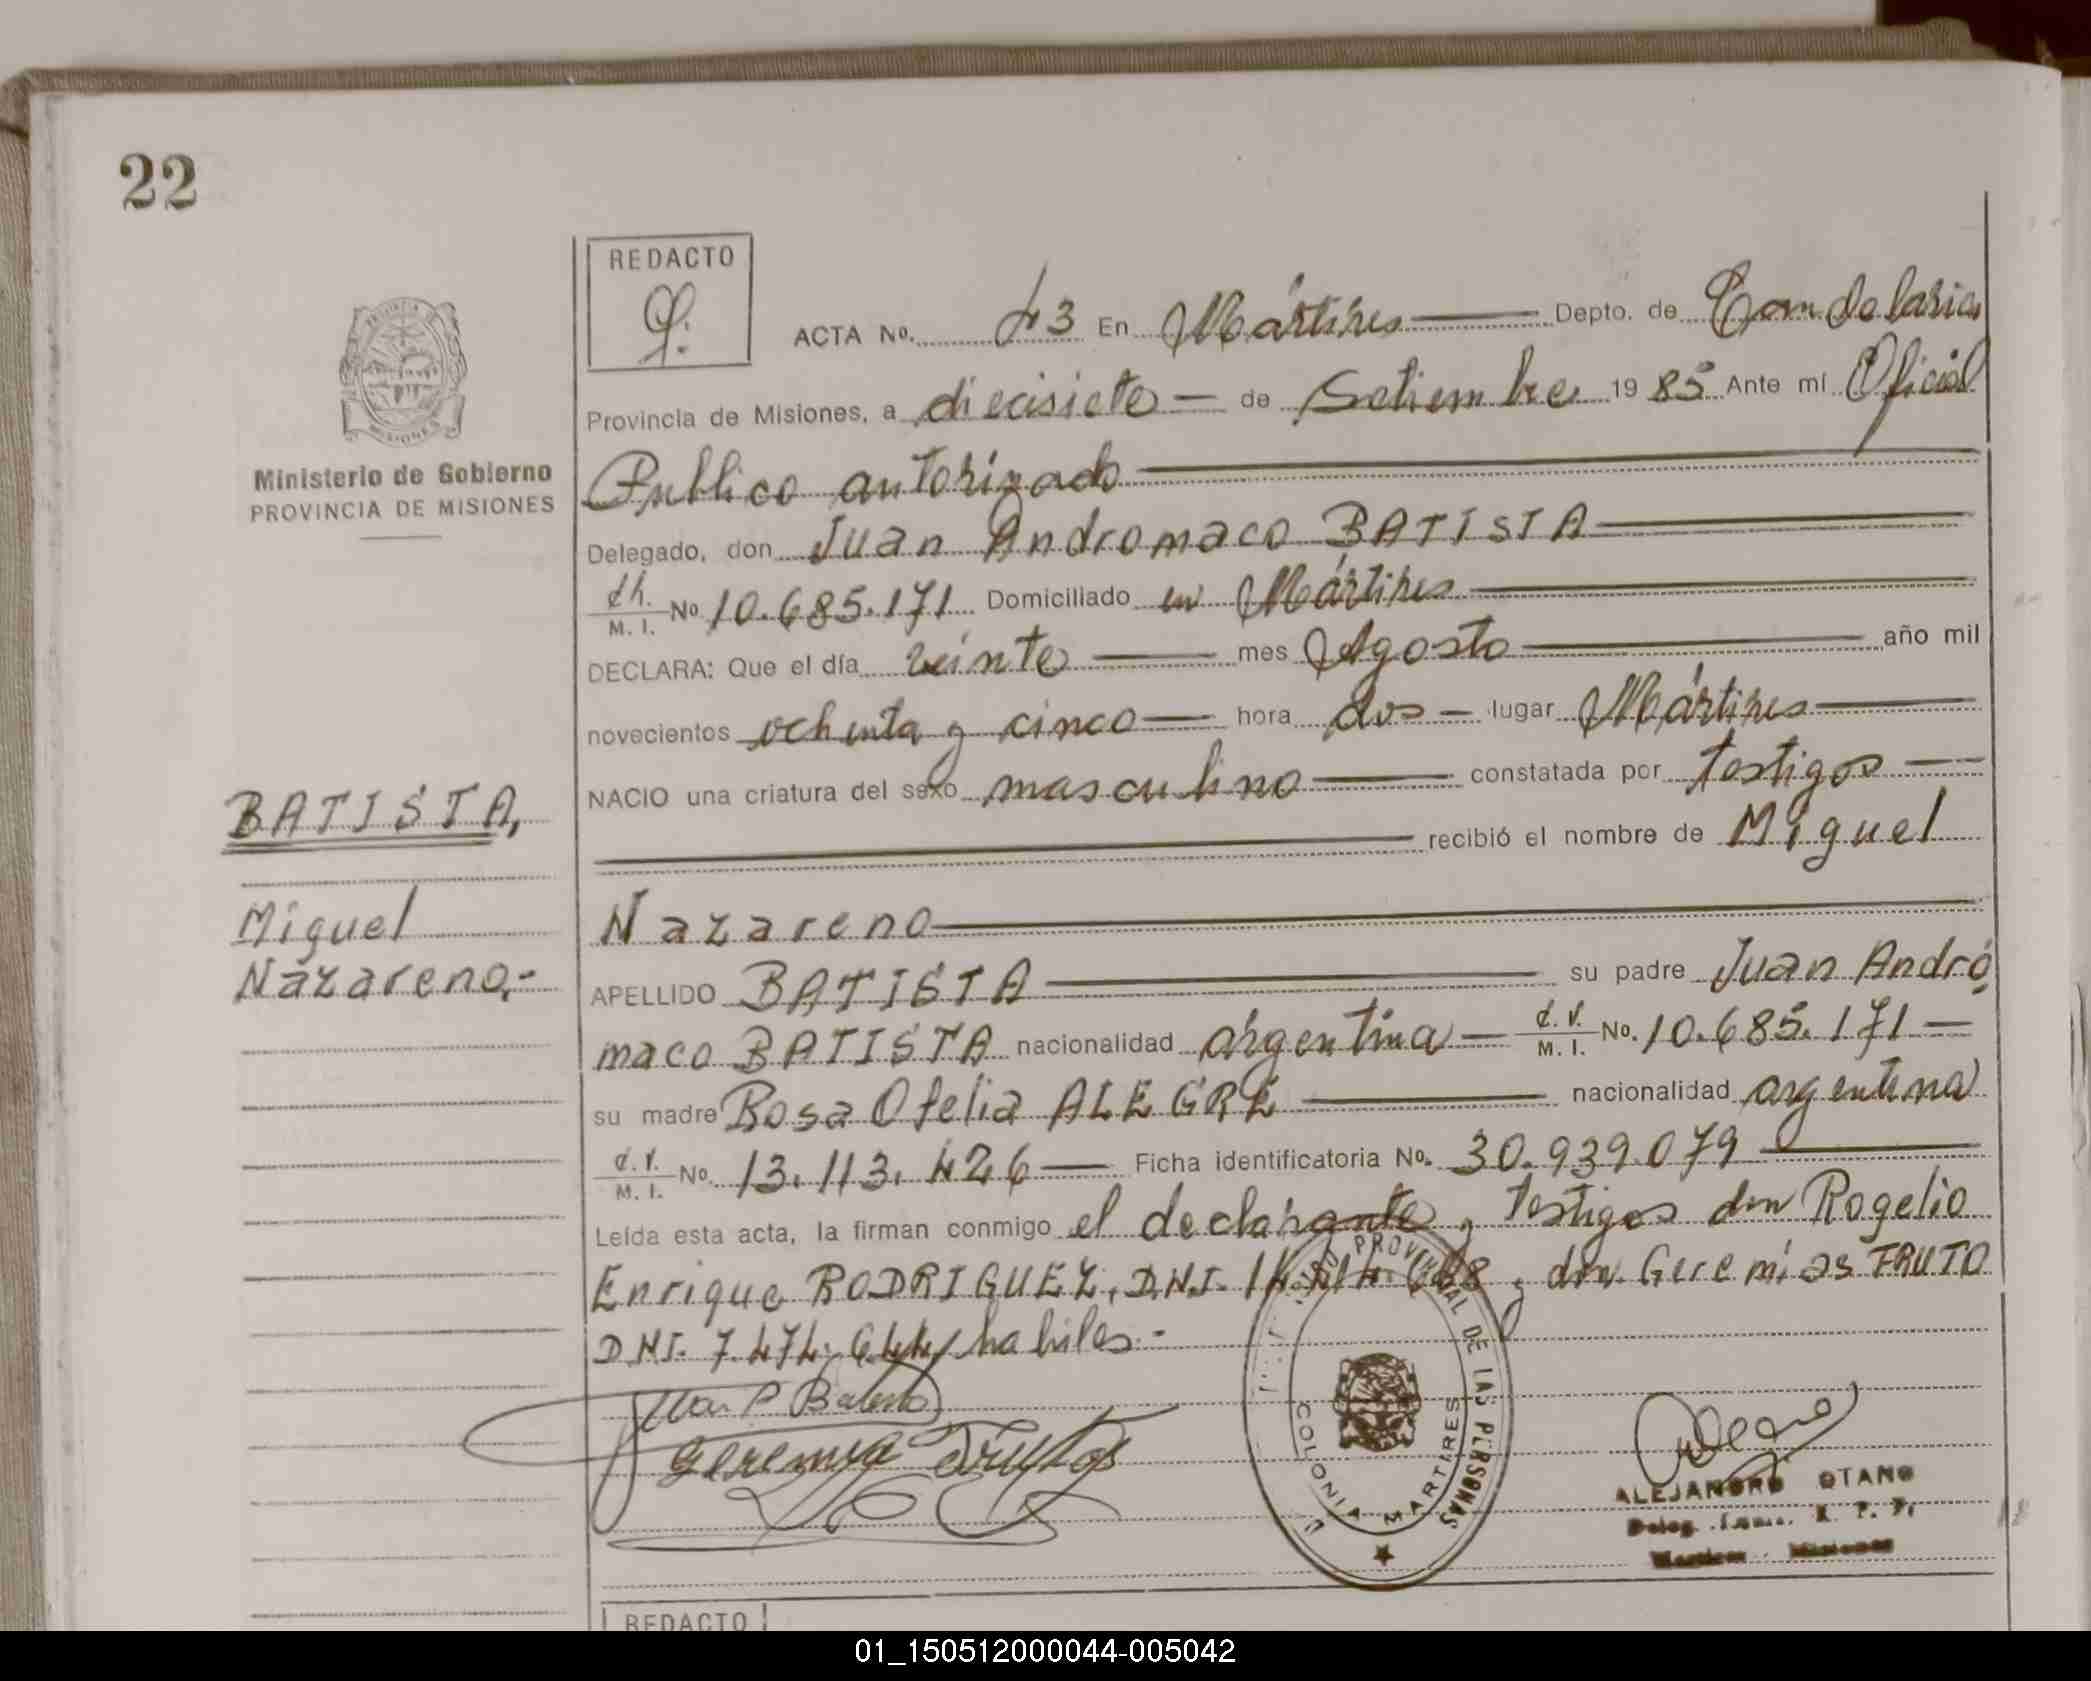 22
REDACTO
ACTA No. 43 En Mártires Depto. de Candelaria
Provincia de Misiones, a diecisiete de Setiembre 19 85 Ante mí Oficial
Publico autorizado
Ministerio de Gobierno
PROVINCIA DE MISIONES
Delegado, don Juan Andromaco BATISTA
M. I. No. 10.685.171 Domiciliado en Mártires
DECLARA: Que el día veinte mes Agosto año mil
novecientos ochenta y cinco hora dos lugar Mártires
NACIO una criatura del sexo masculino constatada por testigos
recibió el nombre de Miguel
Nazareno
BATISTA,
Miguel
Nazareno.-
APELLIDO BATISTA su padre Juan Andró
maco BATISTA nacionalidad argentina M. I. No. 10.685.171
su madre Rosa Ofelia ALEGRE nacionalidad argentina
M. I. No. 13.113.426 Ficha identificatoria No. 30.939.079
Leída esta acta, la firman conmigo el declarante y testigos don Rogelio
Enrique RODRIGUEZ, D.N.I. y don Geremias FRUTO
DNI. 7.474.644, habiles.-
PROVINCIAL DE LAS PERSONAS
COLONIA MARTIRES
MISIONES
ALEJANDRO OTANO
REDACTO
01_150512000044-005042